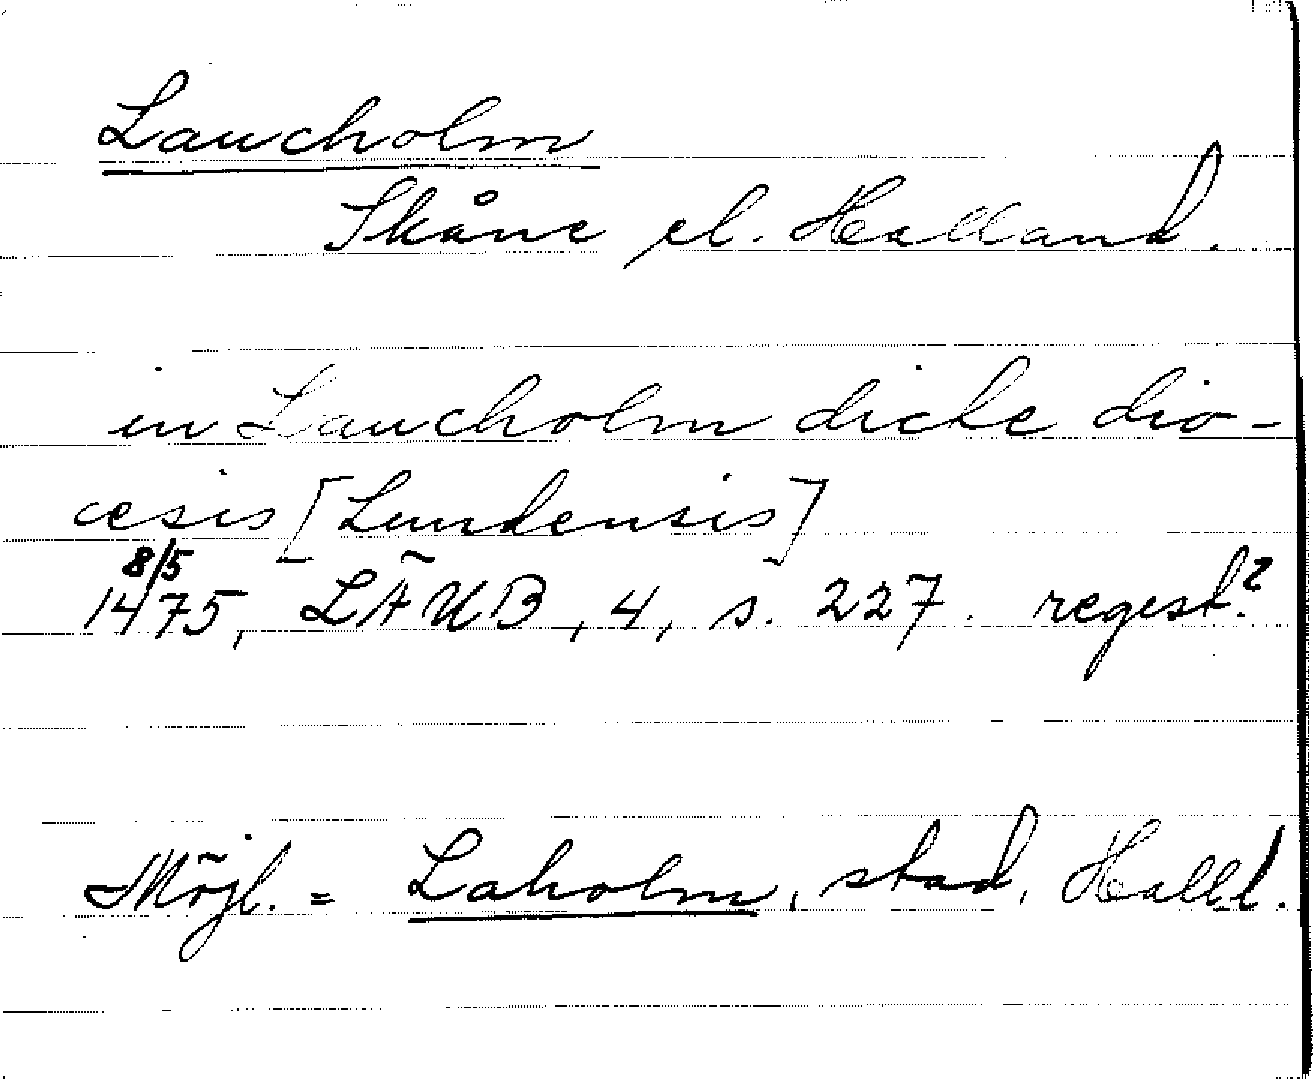 Laucholm
Skåne el. Halland.
in Laucholm dicte dio-
cesis [Lundensis]
8/5
1475, LÄUB, 4, s. 227. regest.?
Möjl. = Laholm, stad, Halld.